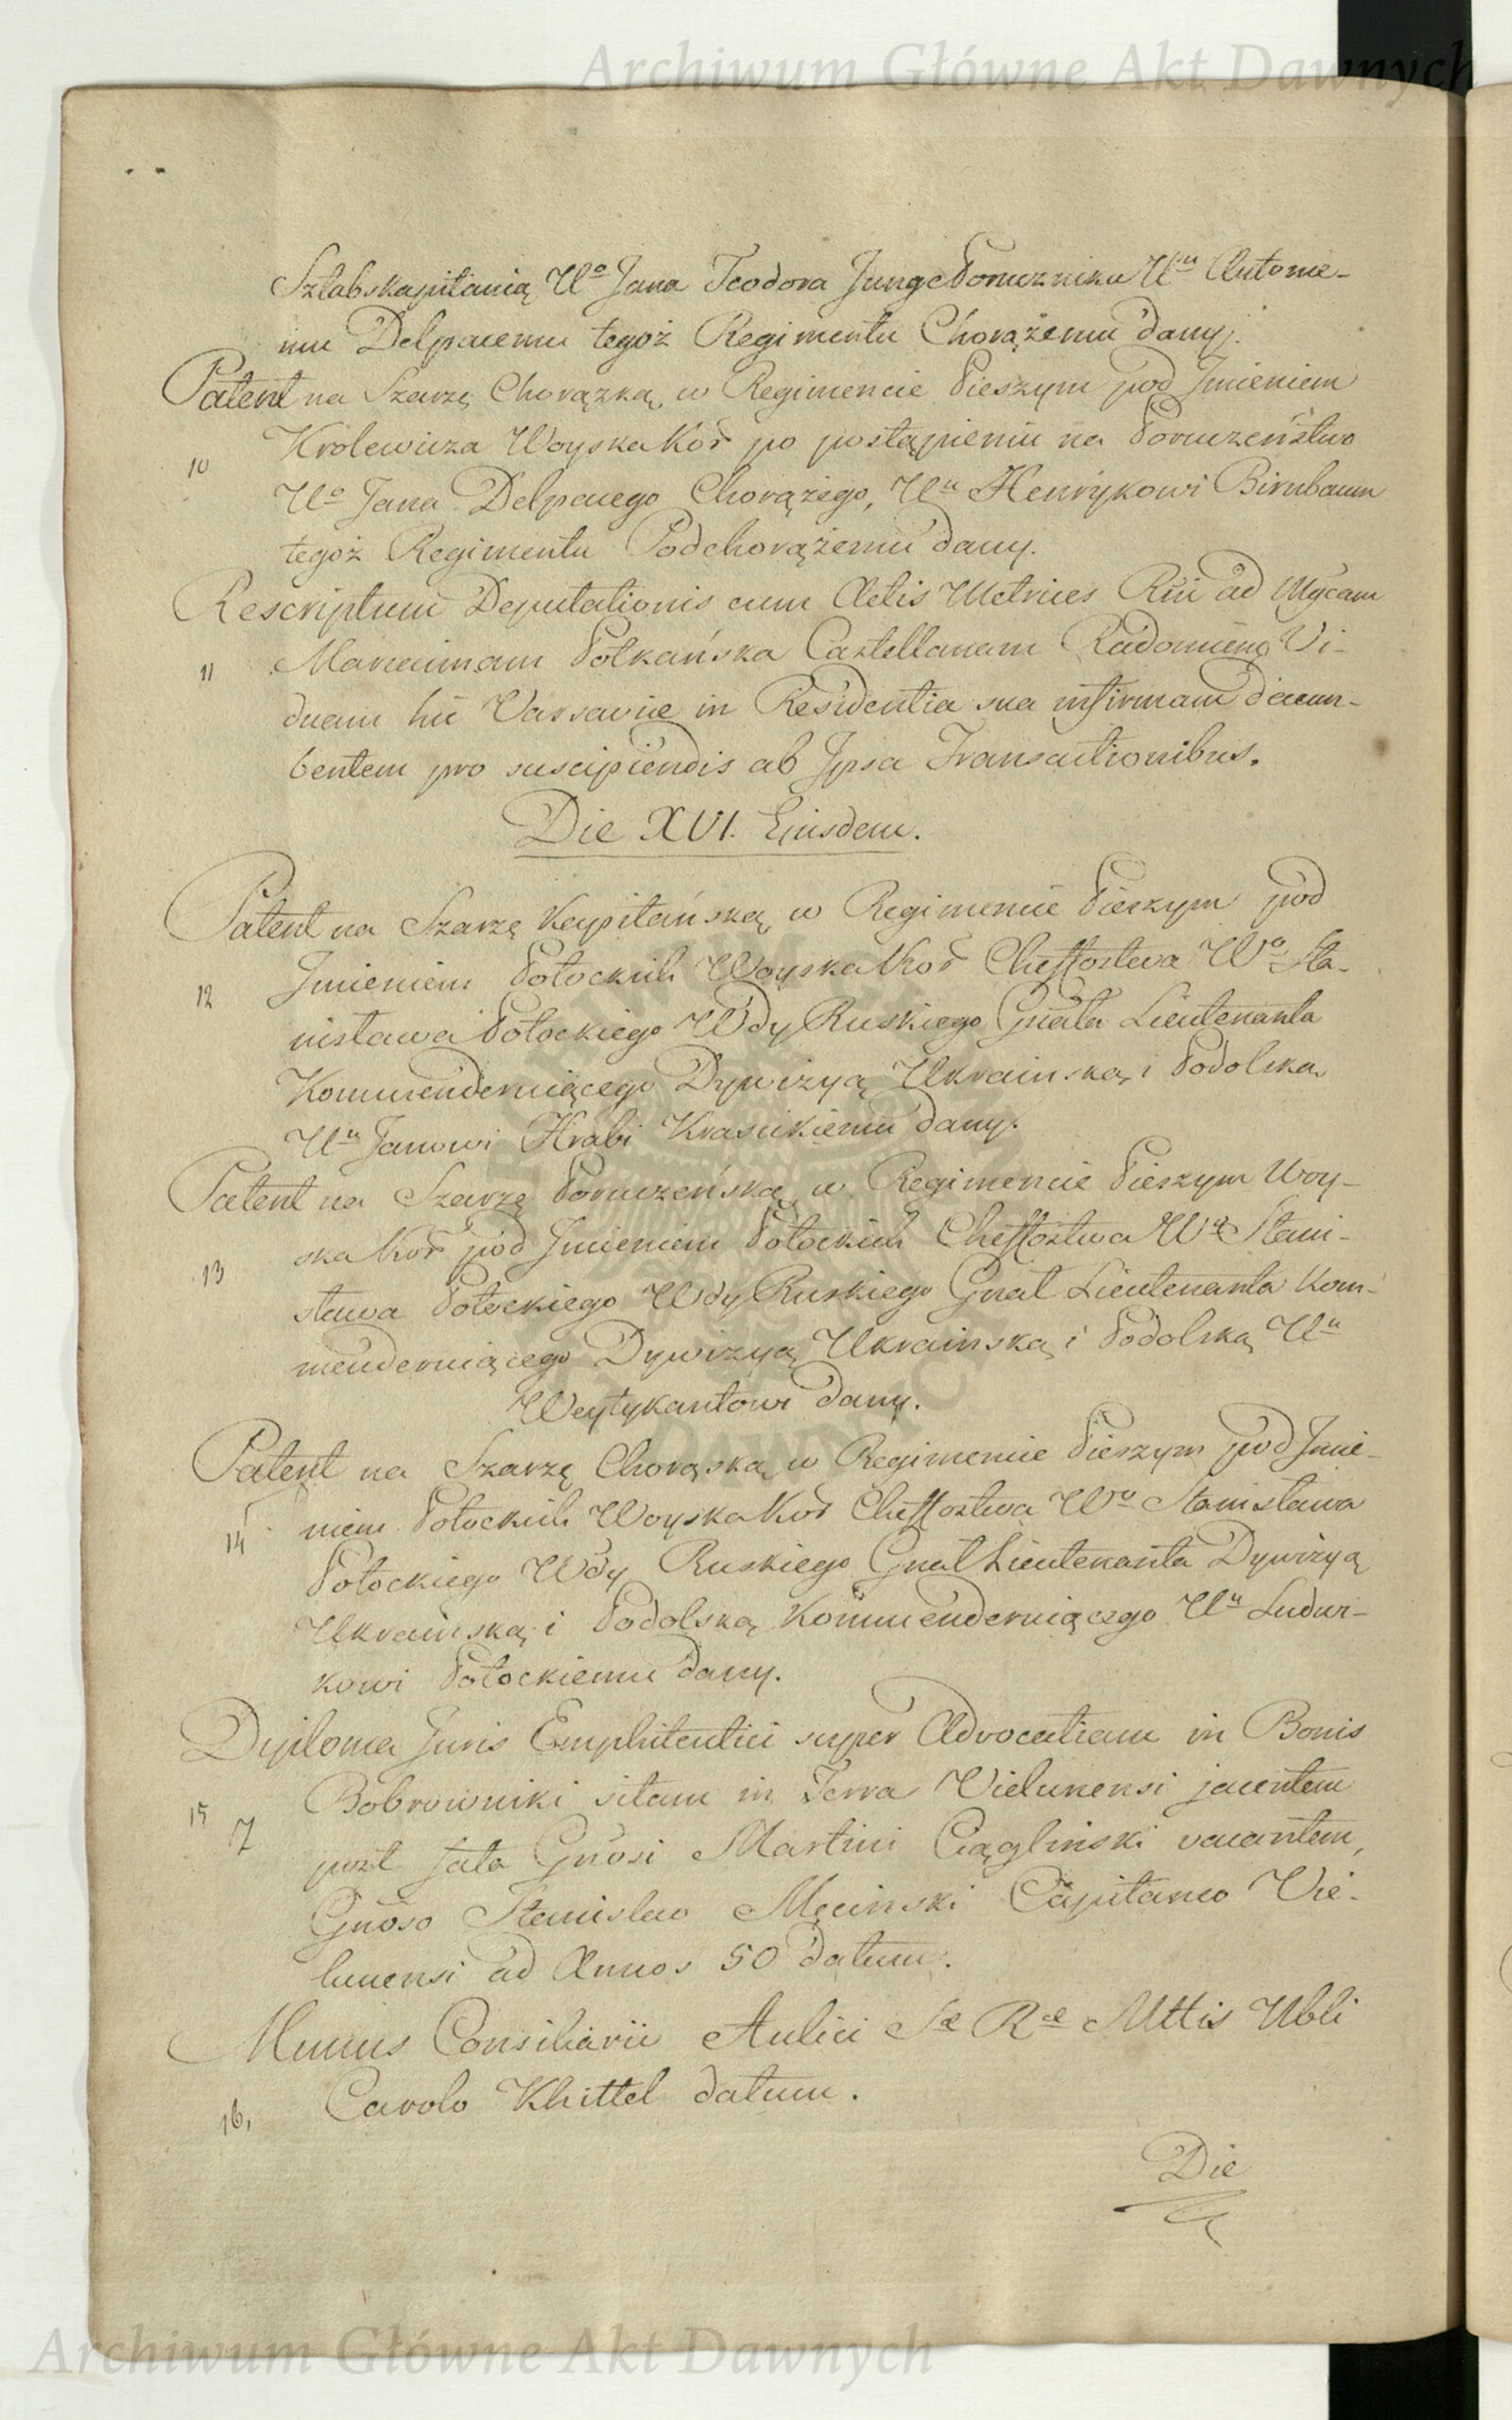 Archiwum Główne Akt Dawnych
Sztabskapitanią Uo Jana Teodora Junge Porucznika Uu Antonie-
mu Delpacemu tegoż Regimentu Chorążemu dany.
Patent na Szarżę Chorązką w Regimencie Pieszym pod Jmieniem
Krolewicza Woyska Kor po postąpieniu na Poruczeństwo
10
Uo Jana Delpacego Chorążego, Uu Henrykowi Birnbaum
tegoż Regimentu Podchorążemu dany.
Rescriptum Deputationis cum Actis Metrices Rni ad Mgcam
11 Mariannam Potkańska Castellanam Radomien Vi-
duam hic Varsavie in Residentia sua infirmam decum-
bentem pro suscipiendis ab Jpsa Transactionibus.
Die XVI. Ejusdem.
Patent na Szarżę Kapitańską w Regimencie Pieszym pod
12 Jmieniem Potockich Woyska Kor Cheffostwa Wo Sta-
nisława Potockiego Wdy Ruskiego Gnała Lieutenanta
Kommenderuiącego Dywizyą Ukrainską i Podolską
Uu Janowi Hrabi Krasickiemu dany.
Patent na Szarżę Poruczeńską w Regimencie Pieszym Woy-
13 ska Kor pod Jmieniem Potockich Cheffostwa Wo Stani-
sława Potockiego Wdy Ruskiego Gnał Lieutenanta Kom-
menderuiącego Dywizyą Ukrainską i Podolską Uu
Weytykantowi dany.
Patent na Szarżę Chorąską w Regimencie Pieszym pod Jmie-
14 niem Potockich Woyska Kor Cheffostwa Wo Stanisława
Potockiego Wdy Ruskiego Gnał Lieutenanta Dywizyą
Ukrainską i Podolską Kommenderuiącego Uu Ludwi-
kowi Potockiemu dany.
Diploma Juris Emphiteutici super Advocatiam in Bonis
15 7 Bobrowniki sitam in Terra Vielunensi jacentem
post fata Gnosi Martini Ciągliński vacantem,
Gnoso Stanislao Męcinski Capitaneo Vie-
lunensi ad Annos 50 datum.
Munus Consiliarii Aulici Sae Rae Mttis Nbli
16, Carolo Khittel datum.
Die
Archiwum Główne Akt Dawnych